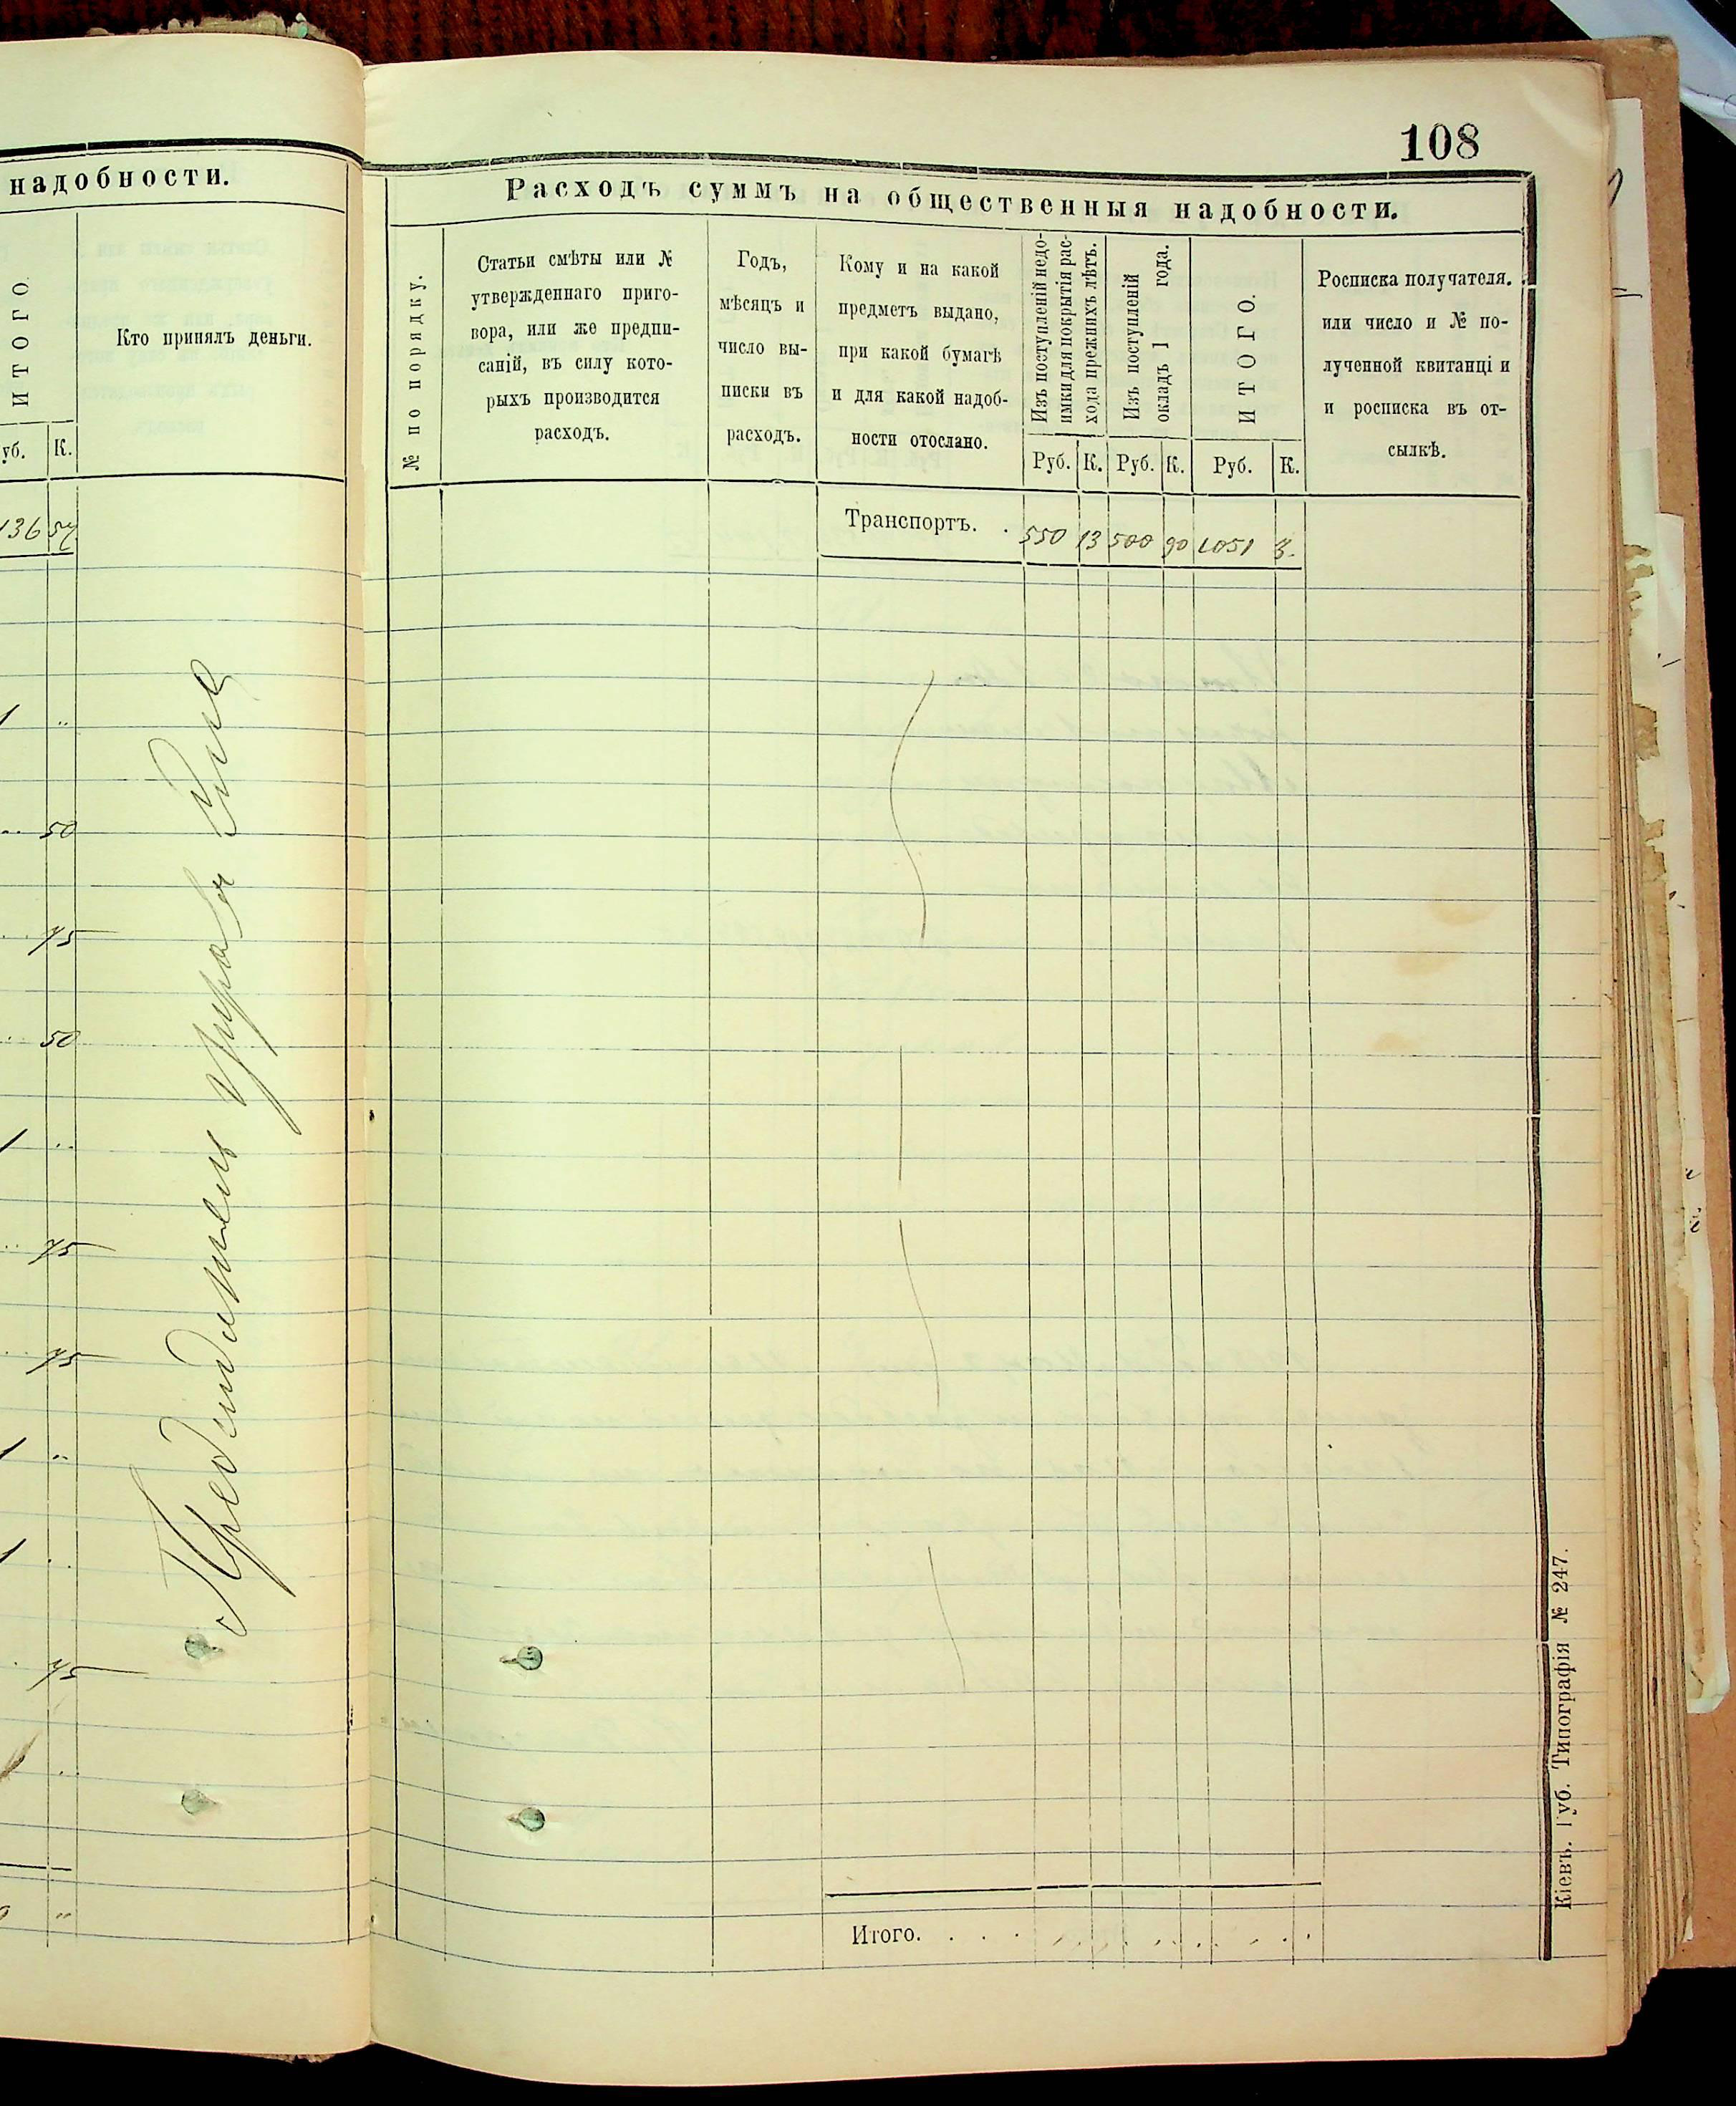 надобности.
ИТОГО.
Кто принялъ деньги.
уб. К.
136 57
1 "
50
75
50
1
75
75
1 "
1
75
"
Предъидитель
108
Расходъ суммъ на общественныя надобности.
№ по порядку.
Статьи смѣты или №
утвержденнаго приго-
вора, или же предпи-
саній, въ силу кото-
рыхъ производится
расходъ.
Годъ,
мѣсяцъ и
число вы-
писки въ
расходъ.
Кому и на какой
предметъ выдано,
при какой бумагѣ
и для какой надоб-
ности отослано.
Изъ поступленій недо-
имки для покрытія рас-
хода прежнихъ лѣтъ.
Изъ поступленій
окладъ 1 года.
ИТОГО.
Руб. К. Руб. К. Руб. К.
Росписка получателя.
или число и № по-
лученной квитанці и
и росписка въ от-
сылкѣ.
Транспортъ. . 550 13 500 90 1051 3.
Итого. . . .
Кіевъ. Губ. Типографія № 247.